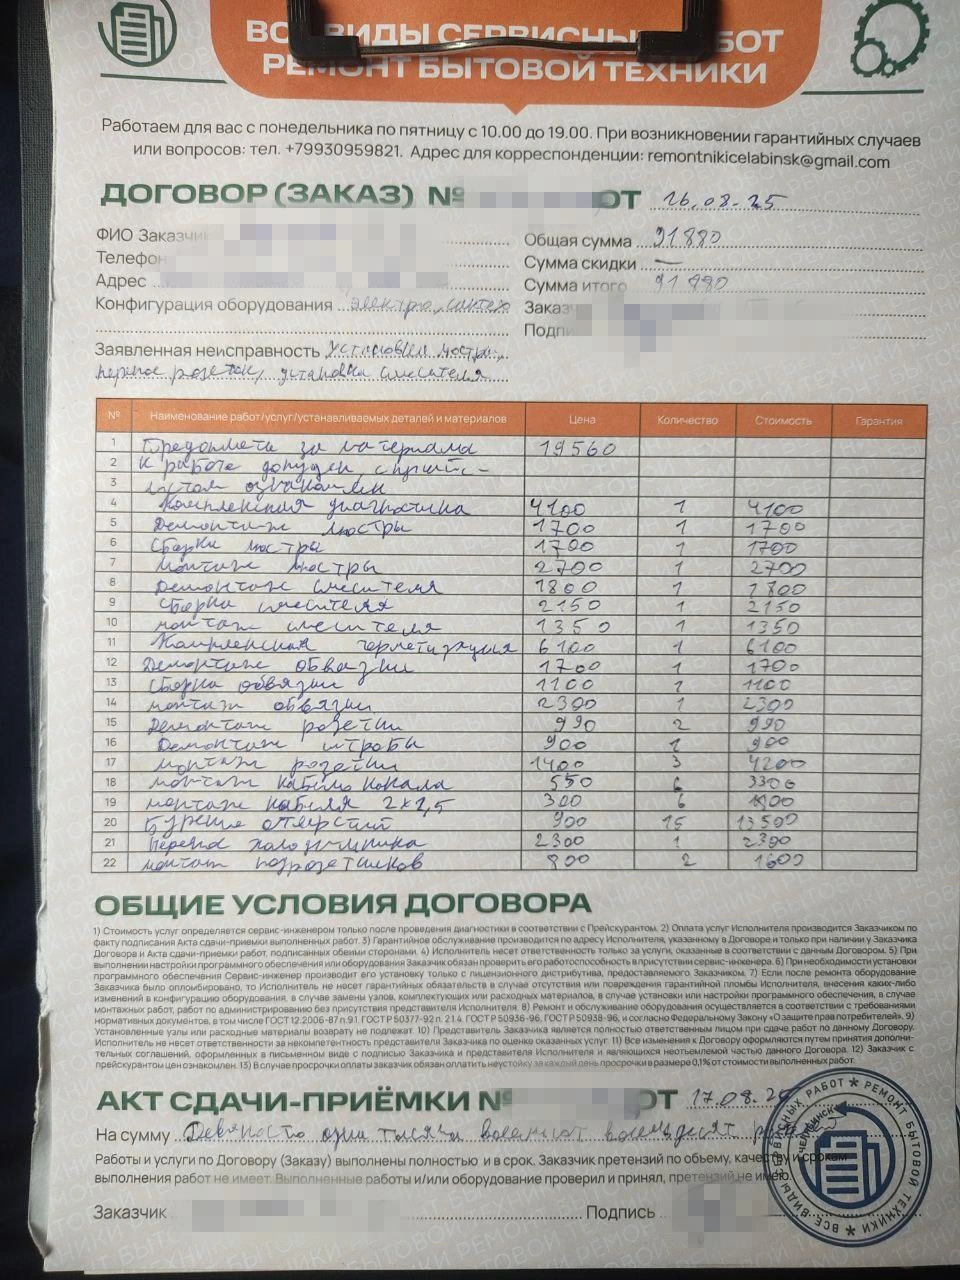 ВСЕ ВИДЫ СЕРВИСНЫХ РАБОТ
РЕМОНТ БЫТОВОЙ ТЕХНИКИ
Работаем для вас с понедельника по пятницу с 10.00 до 19.00. При возникновении гарантийных случаев
или вопросов: тел. +79930959821. Адрес для корреспонденции: remontnikicelabinsk@gmail.com
ДОГОВОР (ЗАКАЗ) № ОТ 16.08.25
ФИО Заказчи
Телефон
Адрес
Конфигурация оборудования электро, сантех
Общая сумма 91880
Сумма скидки —
Сумма итого 91880
Заказ
Подпи
Заявленная неисправность Установка люстры,
перенос розетки, установка смесителя
№ Наименование работ/услуг/устанавливаемых деталей и материалов Цена Количество Стоимость Гарантия
1 Предоплата за материала 19560
2 К работе допущен с прайс-
3 листом ознакомлен
4 Комплексная диагностика 4100 1 4100
5 Демонтаж люстры 1700 1 1700
6 Сборка люстры 1700 1 1700
7 монтаж люстры 2700 1 2700
8 Демонтаж смесителя 1800 1 1800
9 сборка смесителя 2150 1 2150
10 монтаж смесителя 1350 1 1350
11 Комплексная герметизация 6100 1 6100
12 Демонтаж обвязки 1700 1 1700
13 сборка обвязки 1100 1 1100
14 монтаж обвязки 2300 1 2300
15 Демонтаж розетки 990 2 990
16 Демонтаж штробы 900 1 900
17 монтаж розетки 1400 3 4200
18 монтаж кабель канала 550 6 3300
19 монтаж кабеля 2×2,5 300 6 1800
20 Бурение отверстий 900 15 13500
21 Перенос холодильника 2300 1 2300
22 монтаж подрозетников 800 2 1600
ОБЩИЕ УСЛОВИЯ ДОГОВОРА
1) Стоимость услуг определяется сервис-инженером только после проведения диагностики в соответствии с Прейскурантом. 2) Оплата услуг Исполнителя производится Заказчиком по
факту подписания Акта сдачи-приемки выполненных работ. 3) Гарантийное обслуживание производится по адресу Исполнителя, указанному в Договоре и только при наличии у Заказчика
Договора и Акта сдачи-приемки работ, подписанных обеими сторонами. 4) Исполнитель несет ответственность только за услуги, оказанные в соответствии с данным Договором. 5) При
выполнении настройки программного обеспечения или оборудования Заказчик обязан проверить его работоспособность в присутствии сервис-инженера. 6) При необходимости установки
программного обеспечения Сервис-инженер производит его установку только с лицензионного дистрибутива, предоставляемого Заказчиком. 7) Если после ремонта оборудование
Заказчика было опломбировано, то Исполнитель не несет гарантийных обязательств в случае отсутствия или повреждения гарантийной пломбы Исполнителя, внесения каких-либо
изменений в конфигурацию оборудования, в случае замены узлов, комплектующих или расходных материалов, в случае установки или настройки программного обеспечения, в случае
монтажных работ, работ по администрированию без присутствия представителя Исполнителя. 8) Ремонт и обслуживание оборудования осуществляется в соответствии с требованиями
нормативных документов, в том числе ГОСТ 12.2006-87 п 9.1. ГОСТ Р 50377-92 п. 2.1.4. ГОСТ Р 50936-96, ГОСТ Р 50938-96, и согласно Федеральному Закону «О защите прав потребителей». 9)
Установленные узлы или расходные материалы возврату не подлежат. 10) Представитель Заказчика является полностью ответственным лицом при сдаче работ по данному Договору.
Исполнитель не несет ответственности за некомпетентность представителя Заказчика по оценке оказанных услуг. 11) Все изменения к Договору оформляются путем принятия дополни-
тельных соглашений, оформленных в письменном виде с подписью Заказчика и представителя Исполнителя и являющихся неотъемлемой частью данного Договора. 12) Заказчик с
прейскурантом цен ознакомлен. 13) В случае просрочки оплаты заказчик обязан оплатить неустойку за каждый день просрочки в размере 0,1% от стоимости выполненных работ.
АКТ СДАЧИ-ПРИЁМКИ № ОТ 17.08.25
На сумму Девяносто одна тысяча восемьсот восемьдесят рублей
Работы и услуги по Договору (Заказу) выполнены полностью и в срок. Заказчик претензий по объему, качеству и срокам
выполнения работ не имеет. Выполненные работы и/или оборудование проверил и принял, претензий не имею.
Заказчик Подпись
ВСЕ ВИДЫ СЕРВИСНЫХ РАБОТ ★ РЕМОНТ БЫТОВОЙ ТЕХНИКИ ★
ЧЕЛЯБИНСК